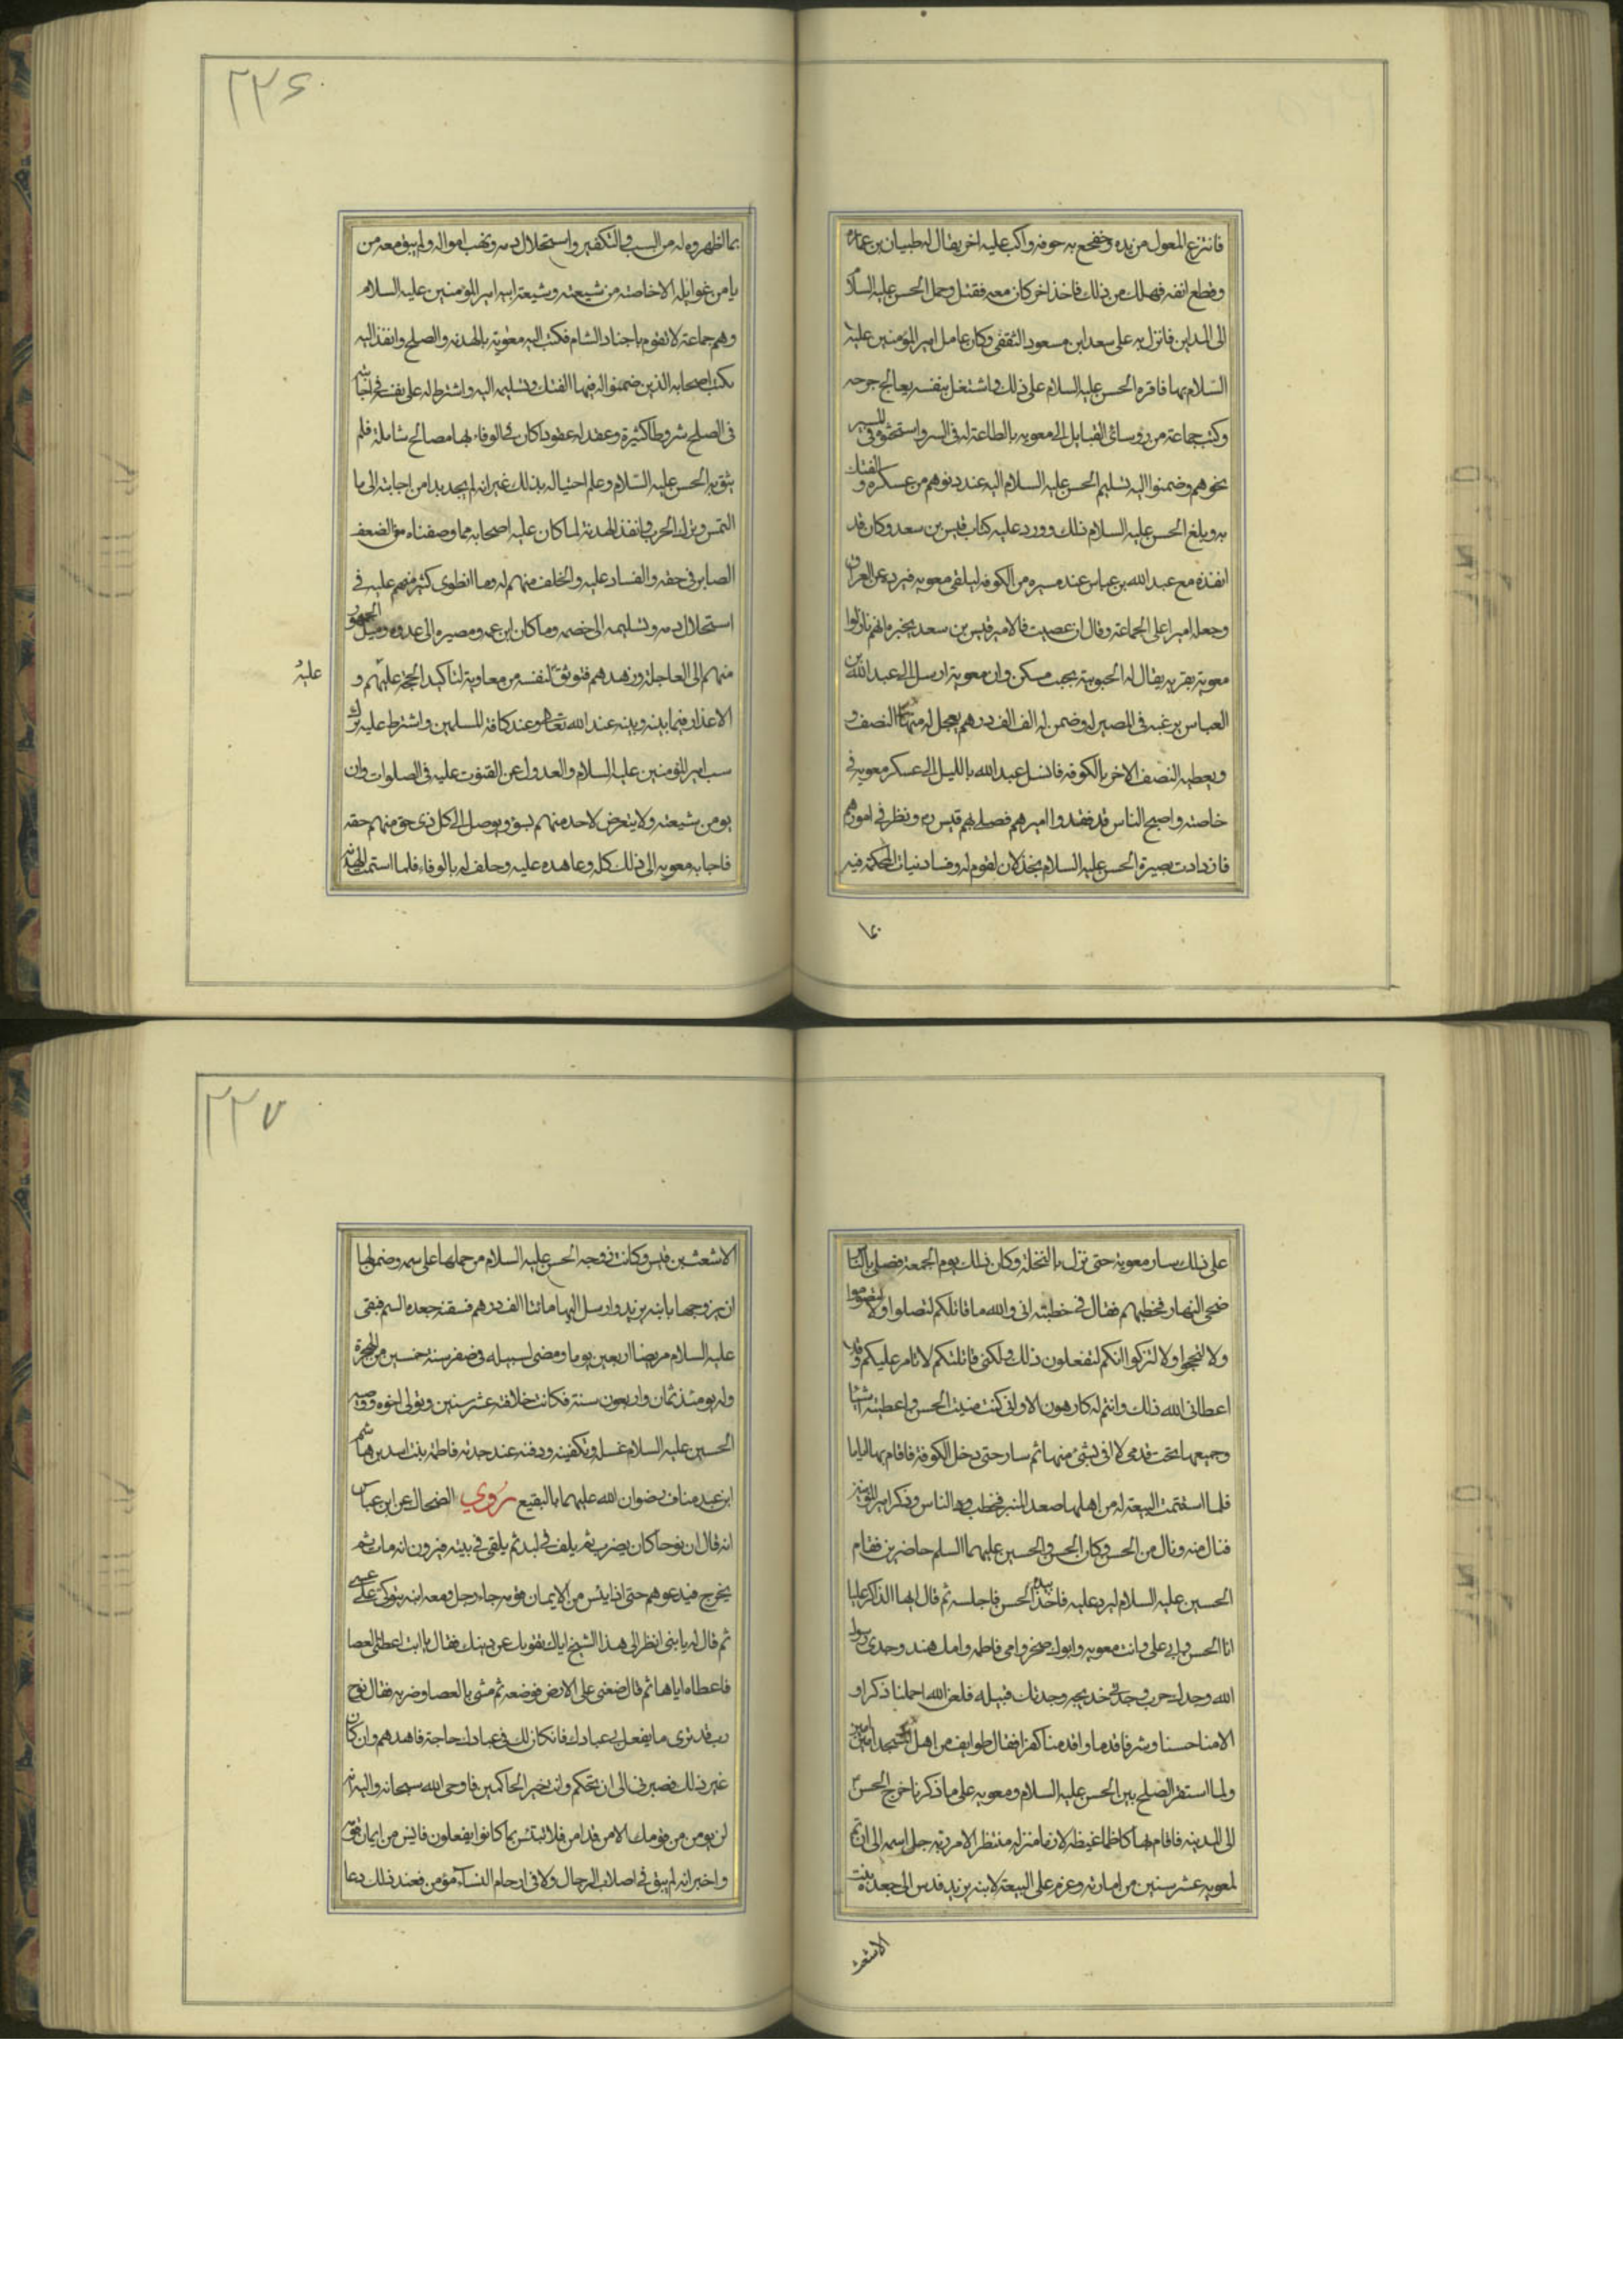 ٢٢٦
فانتزع المعول من يده وخضخع به جوفه واكب عليه اخر يقال له طبيان بن عماره
وقطع انفه فهلك من ذلك فاخذ اخر كان معه فقتل وحمل الحسن عليه السلام
الى المداين فانزل به على سعد ابن مسعود الثقفي وكان عامل امير المؤمنين عليه
السلام بها فاقره الحسن عليه السلام على ذلك واشتغل بنفسه يعالج جرحه
وكتب جماعة من روسائ القبايل الى معويه بالطاعة له في السر واستحثوه في المسير
نحوهم وضمنوا اليه تسليم الحسن عليه السلام اليه عند دنوهم من عسكره والفتك
به وبلغ الحسن عليه السلام ذلك وورد عليه كتاب قيس بن سعد وكان قد
انفذه مع عبد الله بن عباس عند مسيره من الكوفه ليلقى معويه فيرده عن العراق
وجعله اميرا على الجماعة وقال ان اصبت فالامير قيس بن سعد يخبره انهم نازلوا
معوية بقريه يقال له الحبوبية بجب مسكن وان معوية ارسل الى عبد الله بن
العباس يرغبه في المصير له وضمن له الف الف درهم يعجل له منها النصف و
ويعطيه النصف الاخر بالكوفه فانسل عبد الله بالليل الى عسكر معويه في
خاصته واصبح الناس قد فقدوا اميرهم فصلى بهم قيس ره ونظر في امورهم
فازدادت بصيرة الحسن عليه السلام بخذلان لقوم له وفساد نيات المحكمة فيه
بما
بما اظهروه له من السب والتكفير واستحلال دمه ونهب امواله ولم يبق معه من
يامن غوايله الا خاصته من شيعته وشيعة ابيه امير المؤمنين عليه السلام
وهم جماعة لا تقوم باجناد الشام فكتب اليه معوية بالهدنه والصلح وانفذ اليه
بكتب اصحابه الذين ضمنوا له فيها الفتك وتسليمه اليه واشترط له على نفسه في اجابته
في الصلح شروطا كثيرة وعقد له عقودا كان في الوفاء بها مصالح شاملة فلم
يثق به الحسن عليه السلام وعلم احتياله بذلك غير انه لم يجد بدا من اجابته الى ما
التمس وترك الحرب وانفذ الهدنة لما كان عليه اصحابه مما وصفناه من الضعف
الصابر في حقه والفساد عليه والخلف منهم له وما انطوى كثير منهم عليه في
استحلال دمه وتسليمه الى خصمه وما كان ابن عمه ومصيره الى عدوه وميل الجمهور
منهم الى العاجلة وزهدهم فتوثق لنفسه من معاوية لتاكيد الحجة عليهم و
عليه
الاعذار فيما بينه وبينه عند الله تعالى وعند كافة المسلمين واشترط عليه ترك
سب امير المؤمنين عليه السلام والعدول عن القنوت عليه في الصلوات وان
يومن شيعته ولا يتعرض لاحد منهم بسوء ويوصل الى كل ذي حق منهم حقه
فاجابه معويه الى ذلك كله وعاهده عليه وحلف له بالوفاء فلما استتمت الهدنة
٢٢٧
على ذلك سار معوية حتى نزل بالنخلة وكان ذلك يوم الجمعة فصلى بالناس
ضحى النهار فخطبهم فقال في خطبته اني والله ما قاتلكم لتصلوا ولا لتصوموا
ولا لتحجوا ولا لتزكوا انكم لتفعلون ذلك ولكني قاتلتكم لاتامر عليكم وقد
اعطاني الله ذلك وانتم له كارهون الا واني كنت منيت الحسن واعطيته اشيا
وجميعها تحت قدمي لا افي بشئ منها ثم سار حتى دخل الكوفة فاقام بها اياما
فلما استتمت البيعة له من اهلها صعد المنبر فخطب بها الناس وذكر امير المؤمنين
فنال منه ونال من الحسن وكان الحسن والحسين عليهما السلم حاضرين فقام
الحسين عليه السلام ليرد عليه فاخذ بيده الحسن فاجلسه ثم قال ايها الذاكر عليا
انا الحسن وابي علي وانت معويه وابوك صخر وامي فاطمه وامك هند وجدي رسول
الله وجدك حرب وجدتي خديجه وجدتك قتيله فلعن الله اخملنا ذكرا و
الامنا حسبا وشرفا قدما واقدمنا كفرا فقال طوايف من اهل المسجد امين امين
ولما استقر الصلح بين الحسن عليه السلام ومعويه على ما ذكرنا خرج الحسن
الى المدينه فاقام بها كاظما غيظه لازما منزله منتظر الامر ربه جل اسمه الى ان تم
لمعويه عشر سنين من امارته وعزم على البيعة لابنه يزيد فدس الى جعدة بنت
الاشعث
الاشعث بن قيس وكانت زوجه الحسن عليه السلام من حملها على سمه وضمن لها
ان يزوجها بابنه يزيد وارسل اليها مائتا الف درهم فسقته جعده السم فبقى
عليه السلام مريضا اربعين يوما ومضى لسبيله في صفر سنه خمسين من الهجرة
وله يومئذ ثمان واربعون سنة فكانت خلافته عشر سنين وتولى اخوه ووصيه
الحسين عليه السلام غسله وتكفينه ودفنه عند جدته فاطمة بنت اسد بن هاشم
ابن عبد مناف رضوان الله عليهما بالبقيع روي الضحاك عن ابن عباس
انه قال ان نوحا كان يضرب ثم يلف في لبد ثم يلقى في بيته فيرون انه مات ثم
يخرج فيدعوهم حتى اذا يئس من الايمان قومه جاء رجل ومعه ابنه يتوكئ على عصى
ثم قال له يا بنى انظر الى هذا الشيخ اياك يغويك عن دينك فقال يا ابت اعطنى العصا
فاعطاه اياها ثم قال ضعني على الارض فوضعه ثم مشى بالعصا وضربه فقال نوح
رب قد ترى ما يفعل بي عبادك فان كان لك في عبادك حاجة فاهدهم وان كان
غير ذلك فصبرني الى ان تحكم وانت خير الحاكمين فاوحى الله سبحانه واليه انه
لن يومن من قومك الا من قد امن فلا تبتئس بما كانوا يفعلون فايس من ايمان قومه
واخبر انه لم يبق في اصلاب الرجال ولا في ارحام النساء مؤمن فعند ذلك دعا